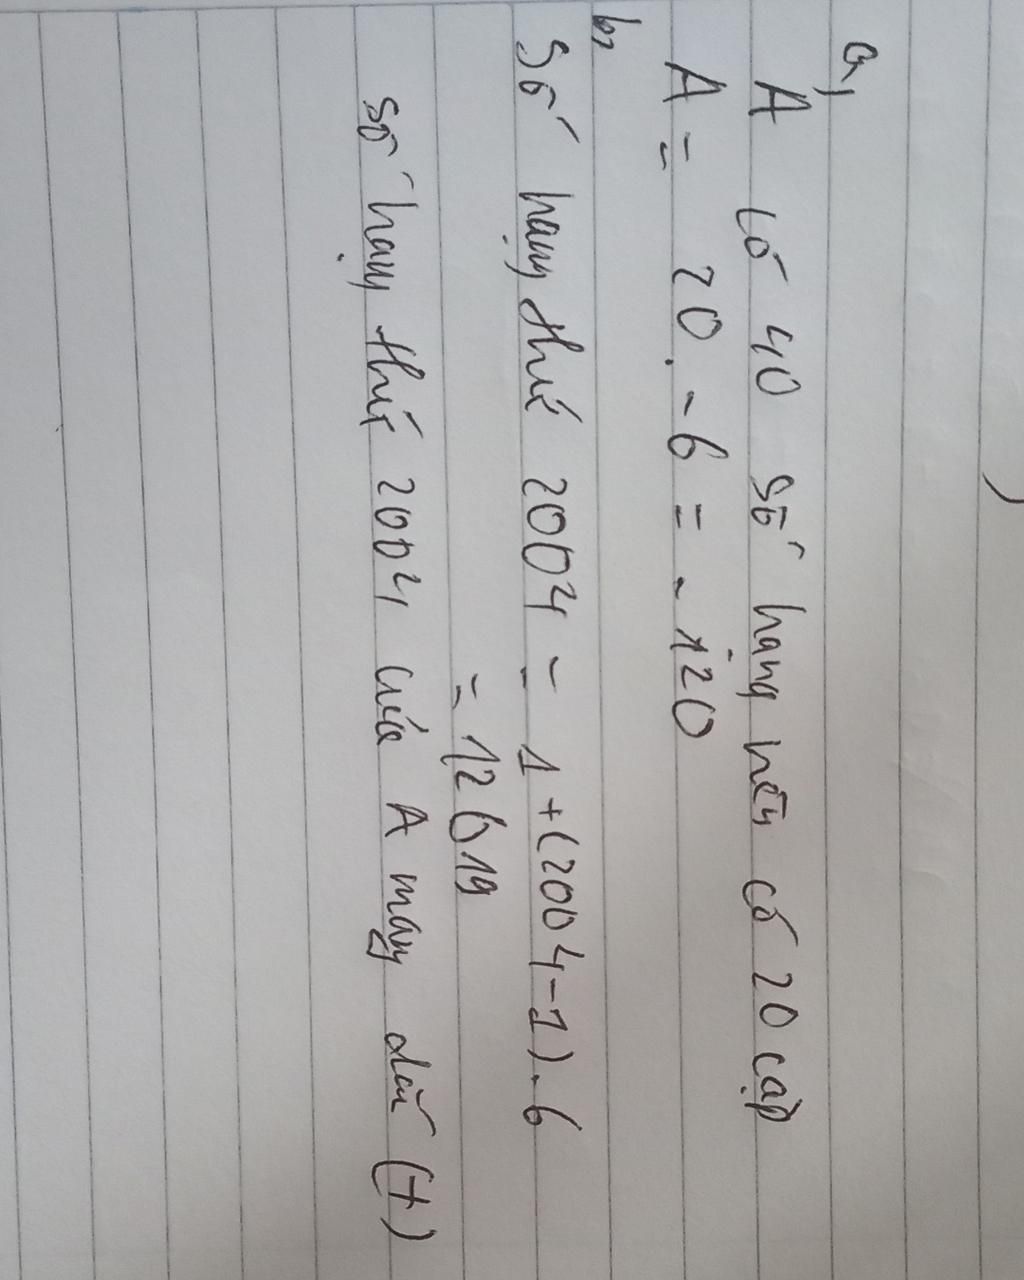 a,
A có 40 số hạng nên có 20 cặp
A = 20 . -6 = -120
b,
Số hạng thứ 2004 = 1 + (2004 - 1) . 6
= 12619
số hạng thứ 2004 của A mang dấu (+)